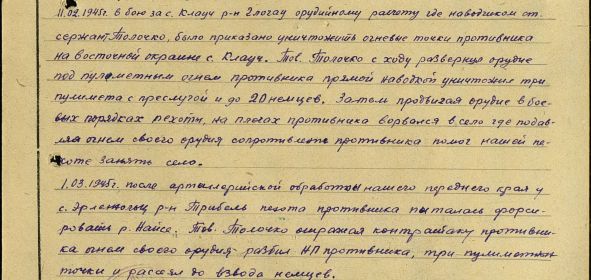 11.02.1945г. в бою за с. Клауч р-н Глогау орудийному расчоту где наводчиком ст.
сержант Толочко, было приказано уничтожить огневые точки противника
на восточной окраине с. Клауч. Тов. Толочко с ходу развернув орудие
под пулеметным огнем противника прямой наводкой уничтожил три
пулимета с преслугой и до 20 немцев. Затем продвигая орудие в бое-
вых порядках пехоты, на плечах противника ворвался в село где подав-
ляя огнем своего орудия сопротивлень противника помог нашей пе-
хоте занять село.
1.03.1945г. после артиллерийской обработки нашего переднего края у
с. Эрленгольц р-н Трибель пехота противника пыталась форси-
ровать р. Найсе. Тов. Толочко отражая контратаку противни-
ка огнем своего орудия разбил НП противника, три пулиметных
точки и рассеял до взвода немцев.